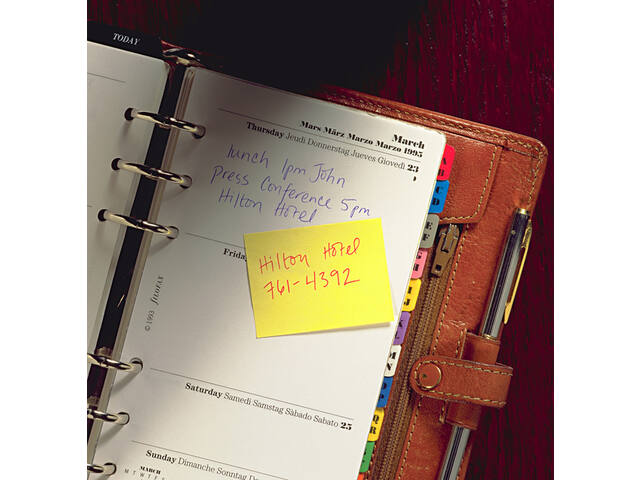 TODAY
March
Mars März Marzo Marzo 1995
Thursday Jeudi Donnerstag Jueves Giovedì 23
lunch 1pm John
Press Conference 5pm
Hilton Hotel
Frida
Hilton Hotel
761-4392
© 1993 filofax
Saturday Samedi Samstag Sàbado Sabato 25
Sunday Dimanche Sonntag Do
MARCH
M T W T F S
A
B
C
D
E
F
G
H
I
J
K
L
M
N
Q
R